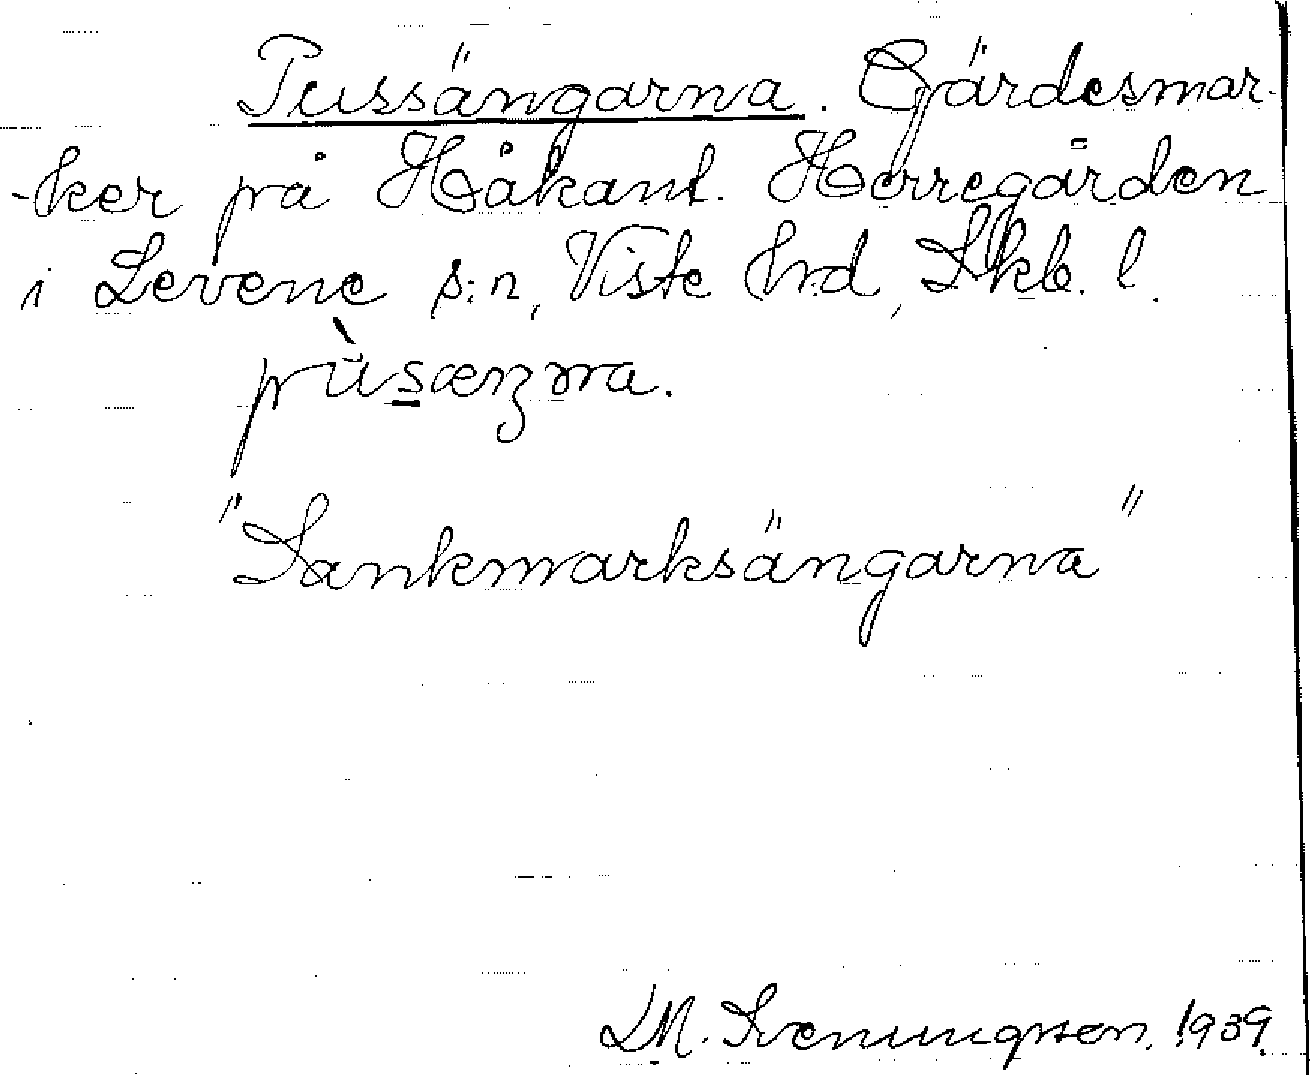 Pussängarna. Gärdesmar-
-ker på Håkant. Herregården
i Levene s:n, Viste hrd, Skb. l.
pùsæŋɐna.
"Sankmarksängarna"
LM. Svenungsson. 1939.